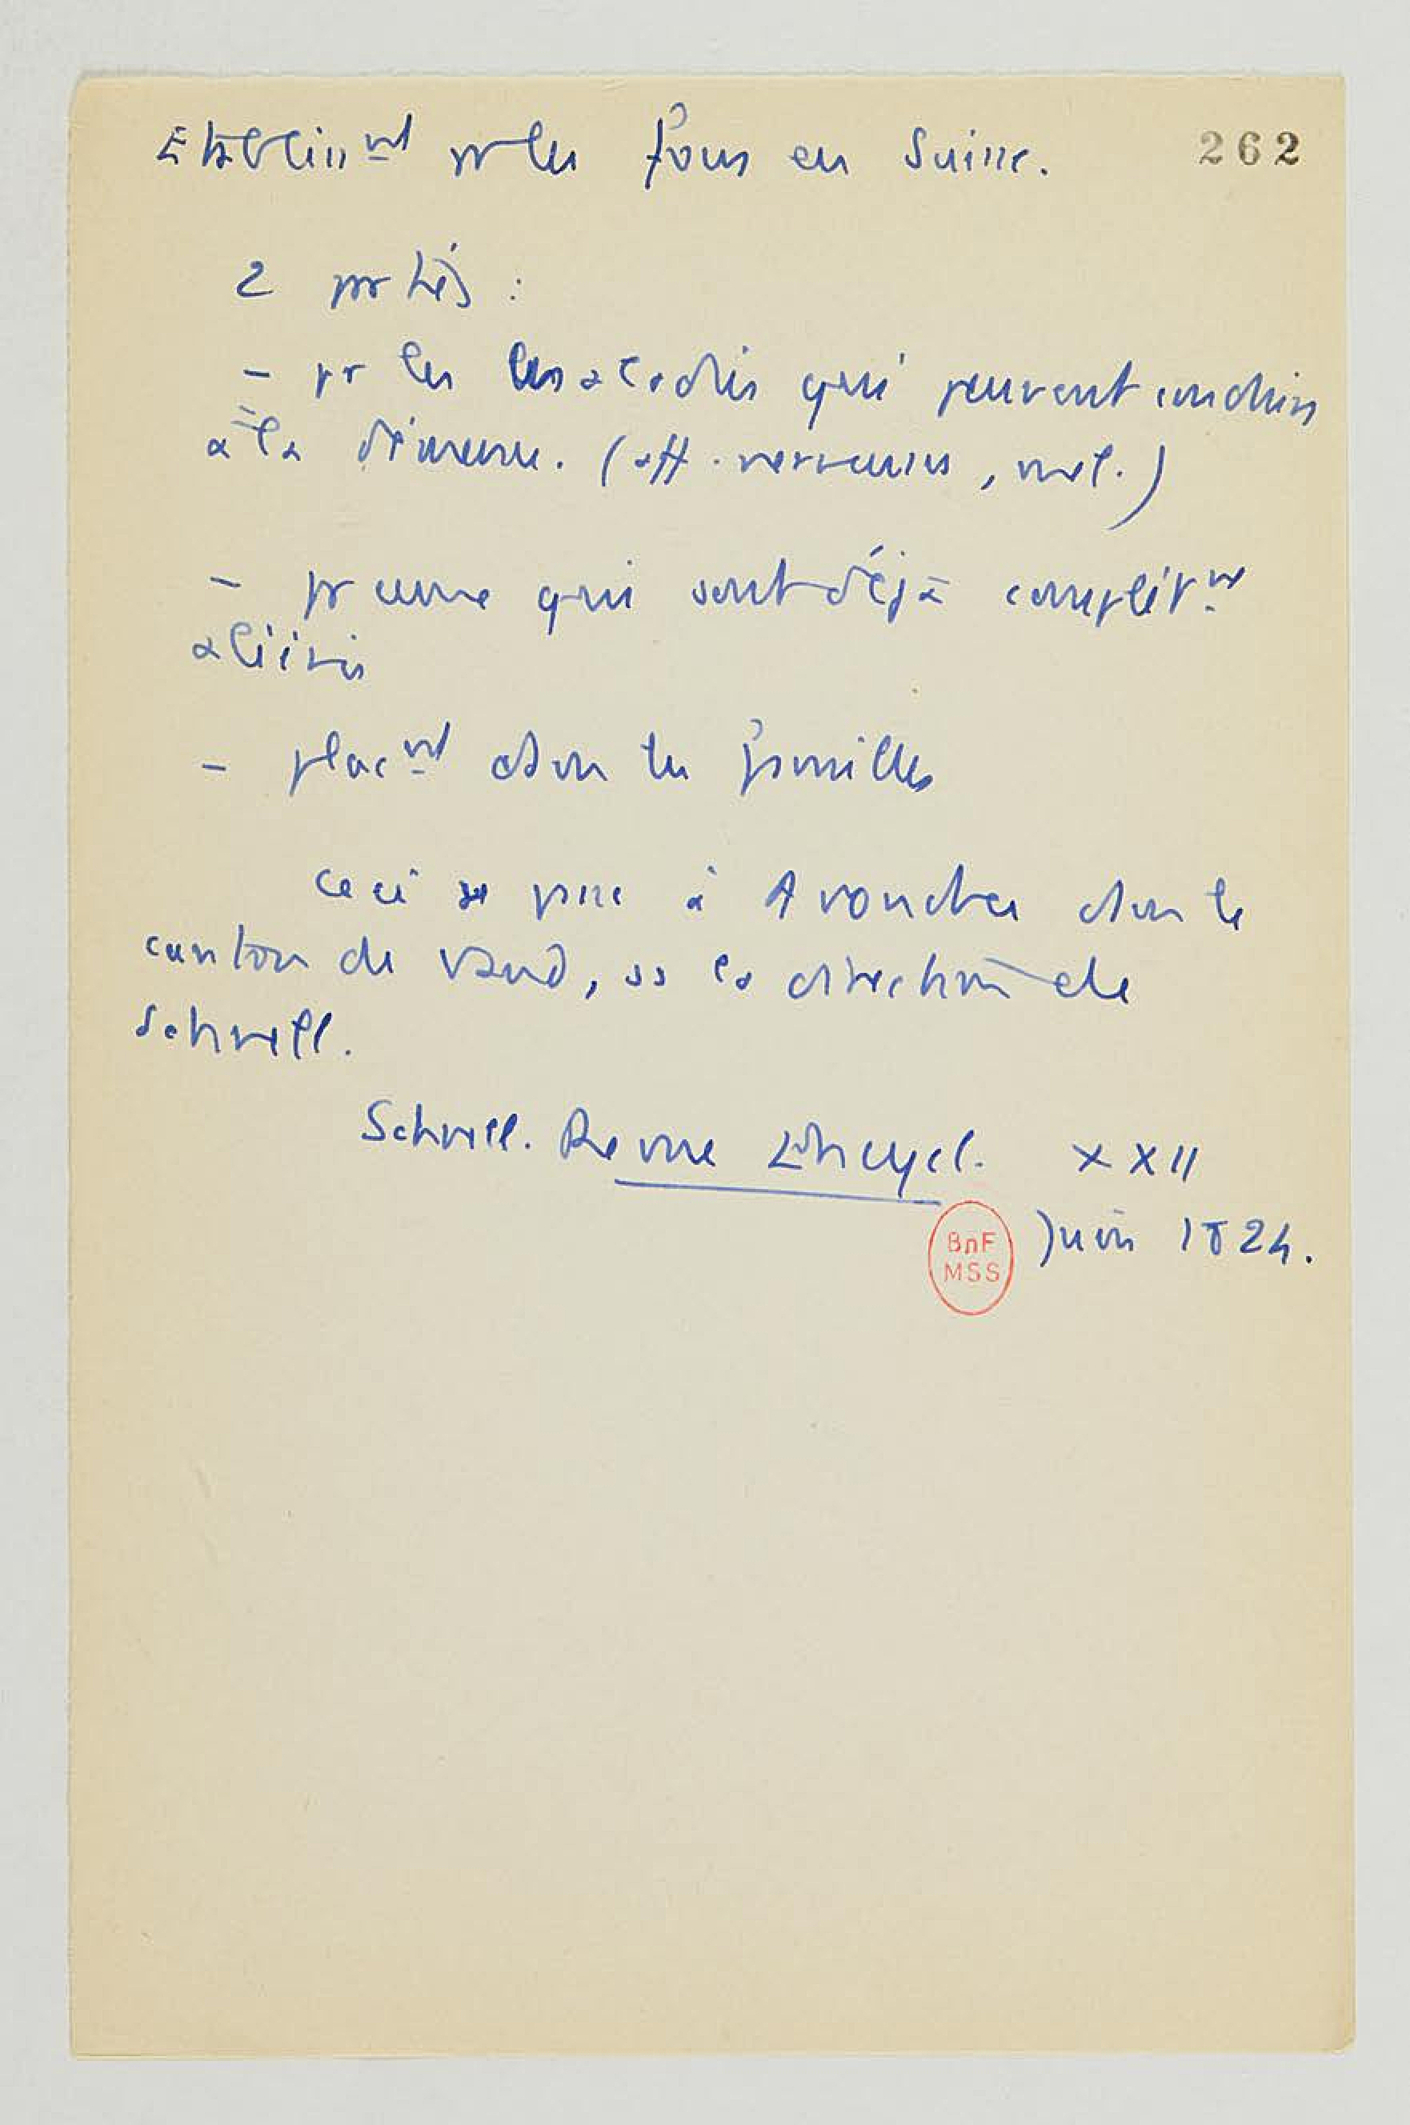 Etabliss^mt pr les fous en Suisse.
262
2 parties :
– pr les maladies qui peuvent conduire
à la démence. (aff. nerveuses, mel.)
– pr ceux qui sont déjà complèt^mt
aliénés
– plac^mt dans les familles
Ceci se passe à Avenches dans le
canton de Vaud, ss la direction de
Schnell.
Schnell. Revue Encycl. XXII
Juin 1824.
BnF
MSS